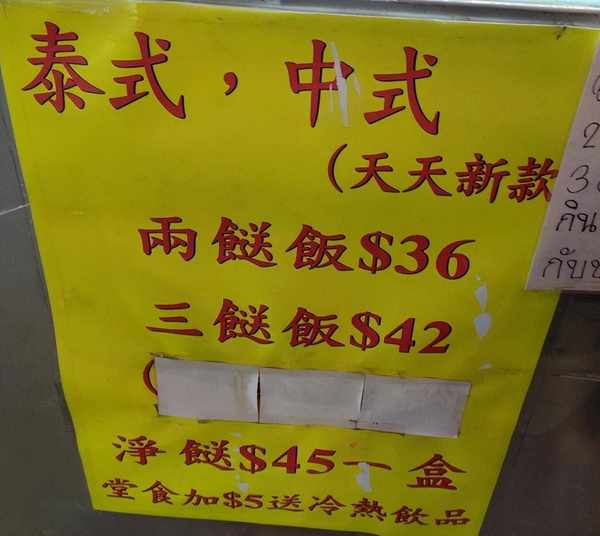 泰式，中式
（天天新款
兩餸飯$36
三餸飯$42
（
淨餸$45一盒
堂食加$5送冷熱飲品
2
3
กิน
กับข